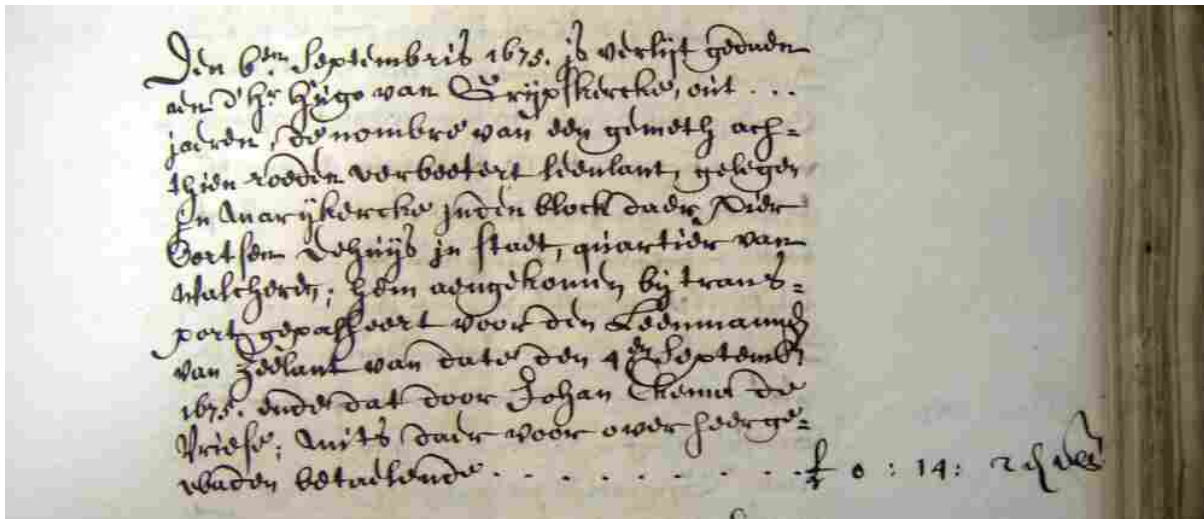 Den 6en. Septembris 1675. is verlijt gedaen
aen d'Hr. Hugo van Grijpskercke, out ...
jaeren, de nombre van een gemeth ach=
thien roeden verbeetert leenlant, gelegen
in Marijkercke inden block daer Pier
Gortsen dehuijs in staet, quartier van
Walcheren; hem aengekomen bij trans=
port gepasseert voor den Leenmannen
van Zeelant van date den 4en Septemb.
1675. ende dat door Johan de
Vriese; mits daer voor over heerge=
waden betaelende . . . . . . . . .
0 : 14 : 2